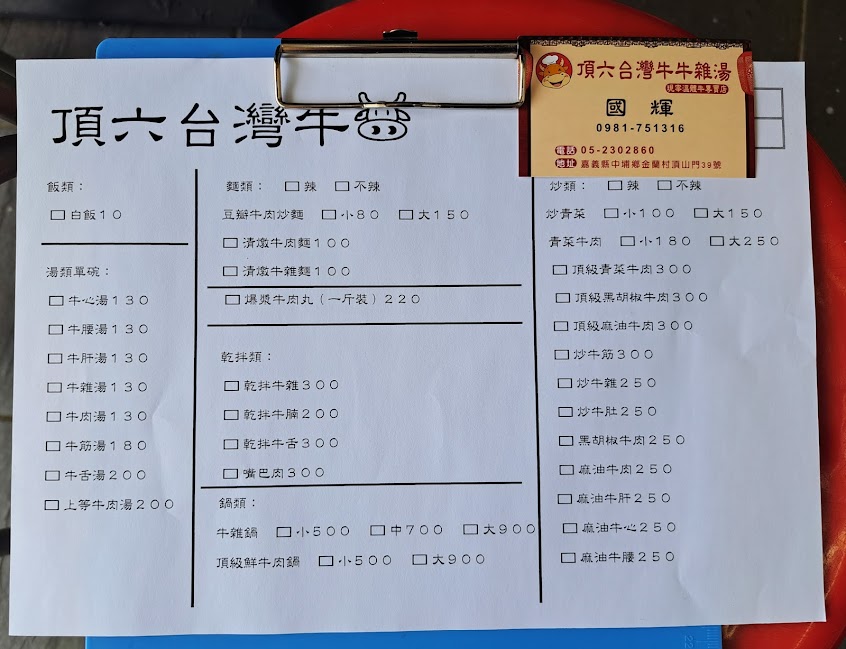 頂六台灣牛
頂六台灣牛牛雜湯
現宰溫體牛專賣店
國輝
0981-751316
電話 05-2302860
地址 嘉義縣中埔鄉金蘭村頂山門39號
飯類：
□白飯10
湯類單碗：
□牛心湯130
□牛腰湯130
□牛肝湯130
□牛雜湯130
□牛肉湯130
□牛筋湯180
□牛舌湯200
□上等牛肉湯200
麵類： □辣 □不辣
豆瓣牛肉炒麵 □小80 □大150
□清燉牛肉麵100
□清燉牛雜麵100
□爆漿牛肉丸（一斤裝）220
乾拌類：
□乾拌牛雜300
□乾拌牛腩200
□乾拌牛舌300
□嘴巴肉300
鍋類：
牛雜鍋 □小500 □中700 □大900
頂級鮮牛肉鍋 □小500 □大900
炒類： □辣 □不辣
炒青菜 □小100 □大150
青菜牛肉 □小180 □大250
□頂級青菜牛肉300
□頂級黑胡椒牛肉300
□頂級麻油牛肉300
□炒牛筋300
□炒牛雜250
□炒牛肚250
□黑胡椒牛肉250
□麻油牛肉250
□麻油牛肝250
□麻油牛心250
□麻油牛腰250